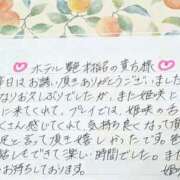 ♡ホテル 艶 本指名の貴方様♡
昨日はお誘い頂きありがとうございました
なりお久しぶりでしたが、また姫咲
に来てくれて、プレイでは、姫咲の
くさん感じてくれて、気持ち良くなって
足って言って頂き嬉しかったです。
話しもできて楽しい時間でした。また
お待ちしております。 姫咲